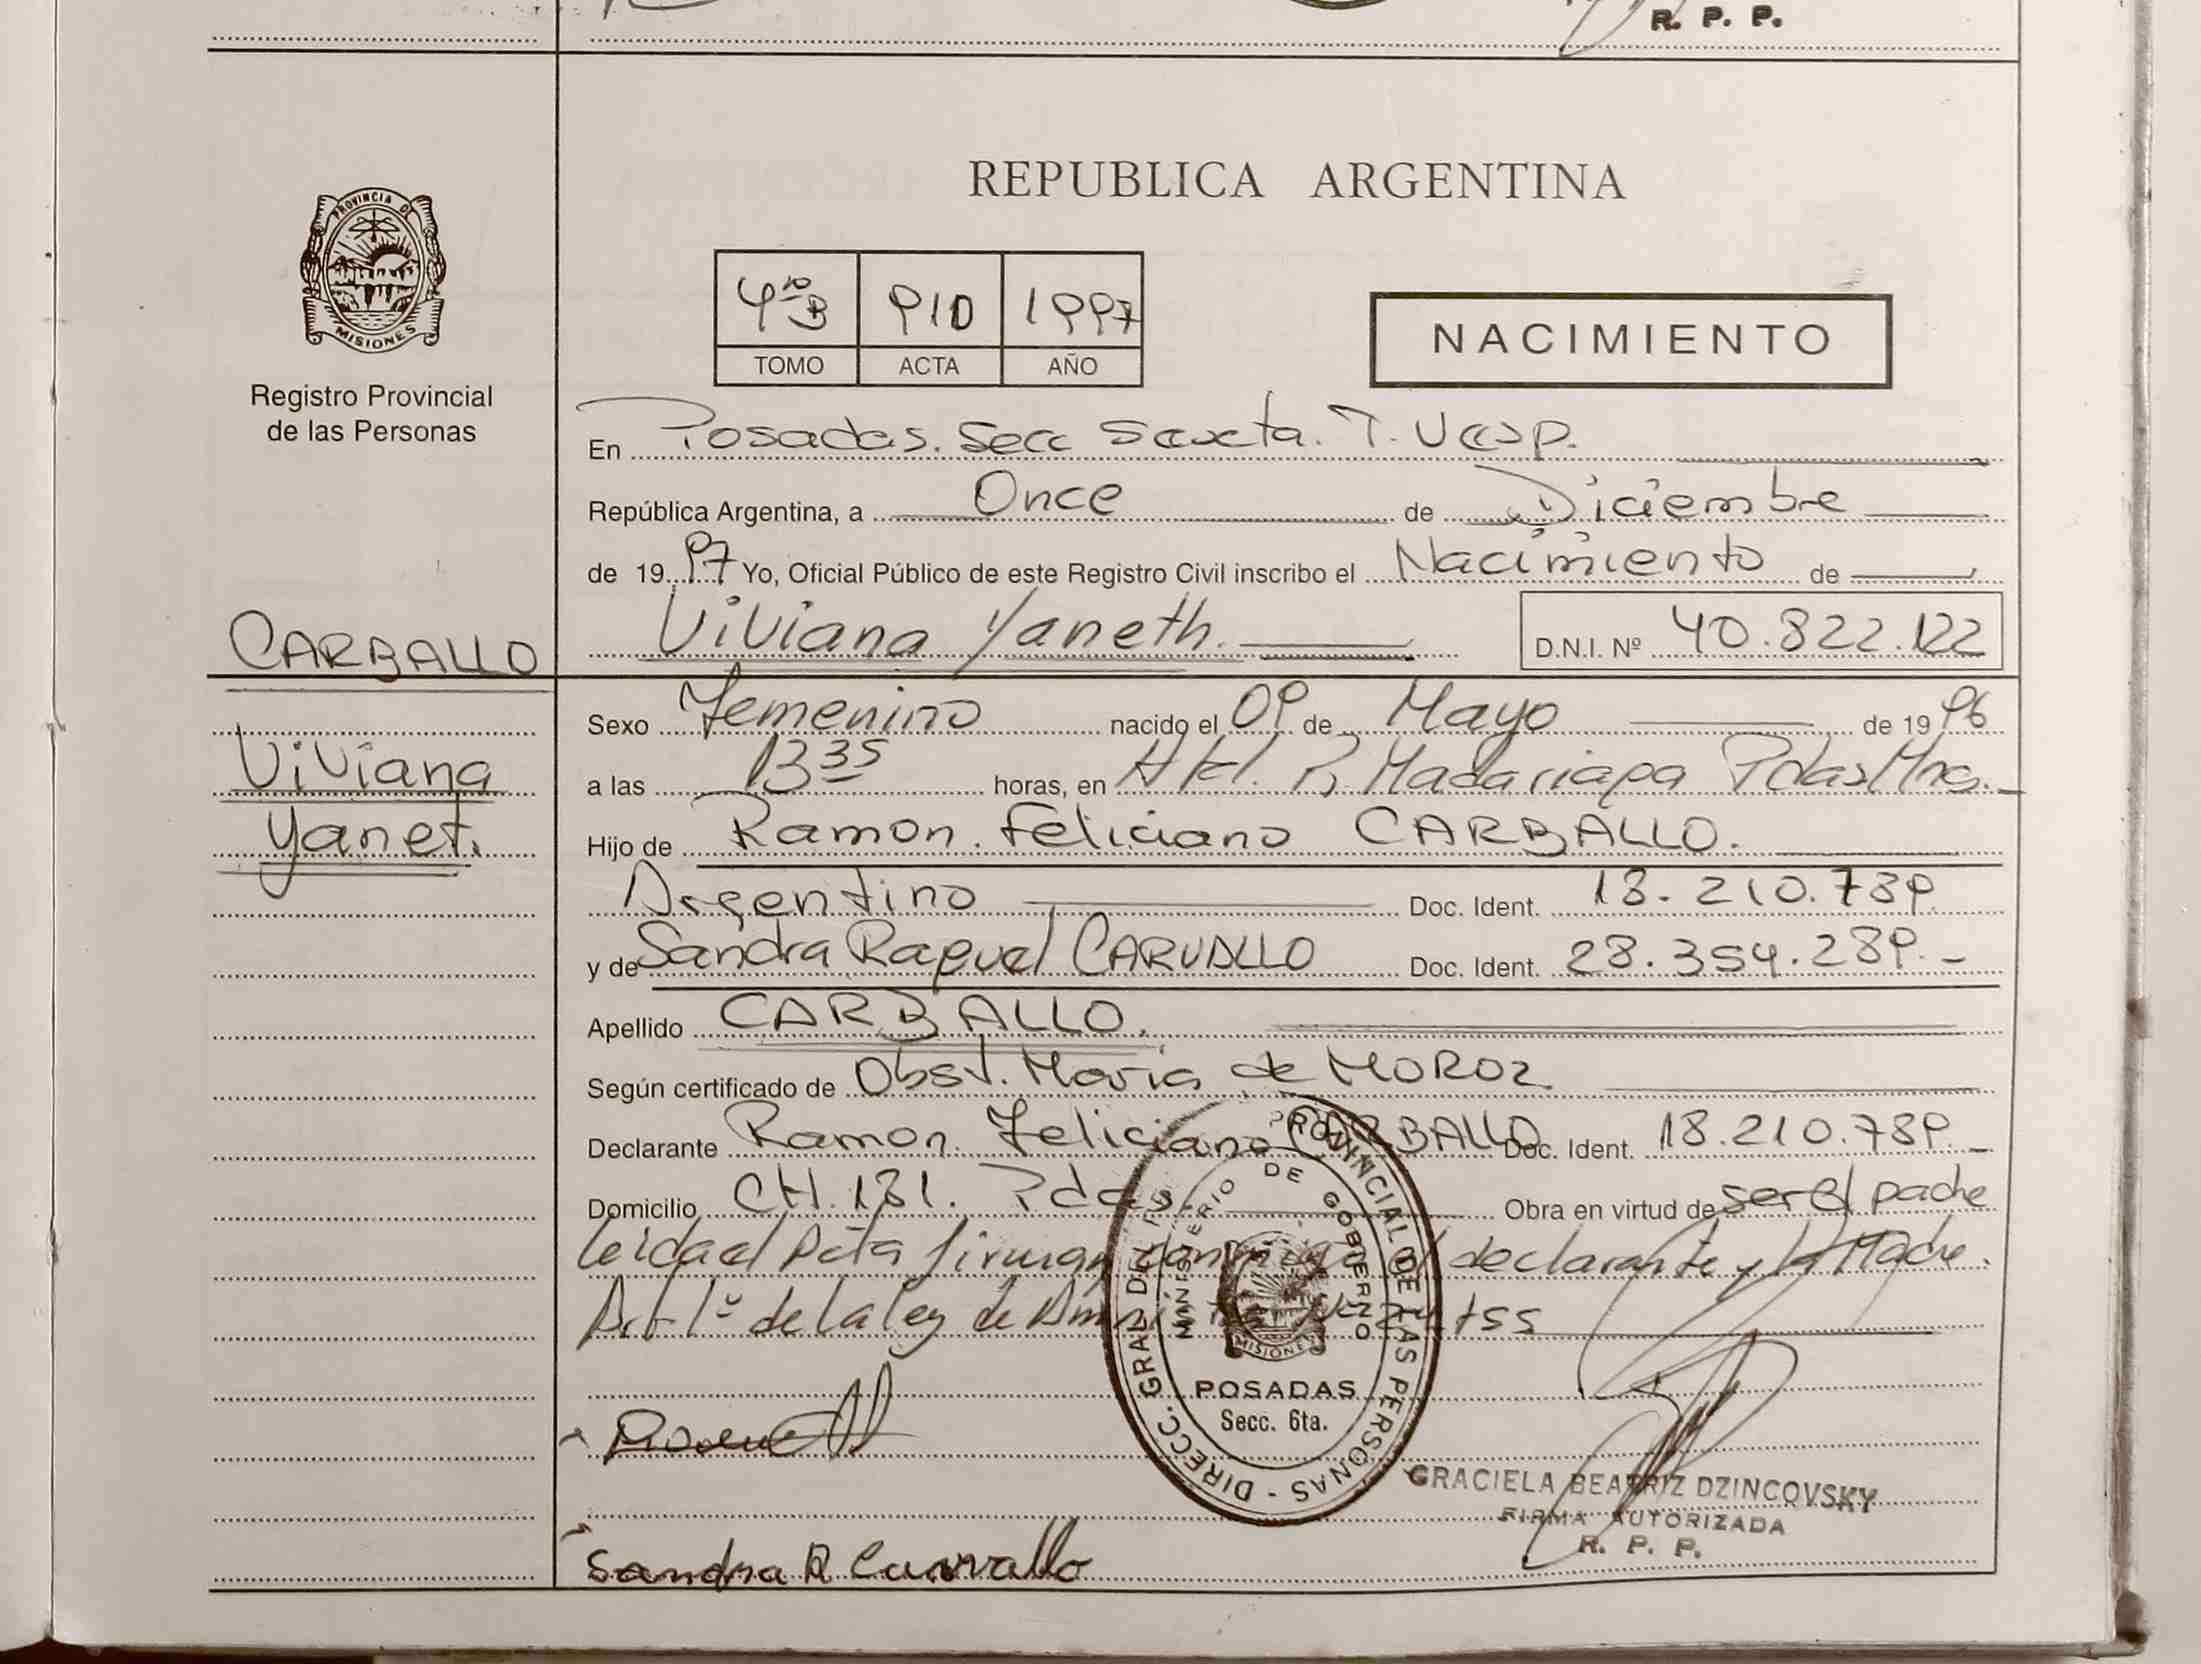 R. P. P.
PROVINCIA DE
MISIONES
Registro Provincial
de las Personas
CARBALLO
Viviana
Yanet.
REPUBLICA ARGENTINA
4to B 910 1997
TOMO ACTA AÑO
NACIMIENTO
En Posadas. Secc Sexta. T. Vesp.
República Argentina, a Once de Diciembre
de 1997 Yo, Oficial Público de este Registro Civil inscribo el Nacimiento de
Viviana Yaneth. D.N.I. Nº 40.822.122
Sexo Femenino nacido el 09 de Mayo de 1996
a las 13 35 horas, en Htal. R, Madariaga Pdas Mnes.
Hijo de Ramon Feliciano CARBALLO.
Argentino Doc. Ident. 18.210.789
y de Sandra Raquel CARVALLO Doc. Ident. 28.354.289.-
Apellido CARBALLO.
Según certificado de Obst. Maria de MOROZ
Declarante Ramon Feliciano CARBALLO Doc. Ident. 18.210.789.-
Domicilio CH. 181. Pdas. Obra en virtud de ser el padre
leida el Acta firman conmigo el declarante y la Madre.
Art 1º de la ley de Amnistia
DIRECC. GRAL DEL REG. PROVINCIAL DE LAS PERSONAS
MINISTERIO DE GOBIERNO
MISIONES
POSADAS
Secc. 6ta.
GRACIELA BEATRIZ DZINCOVSKY
FIRMA AUTORIZADA
R. P. P.
Sandra R Carvallo